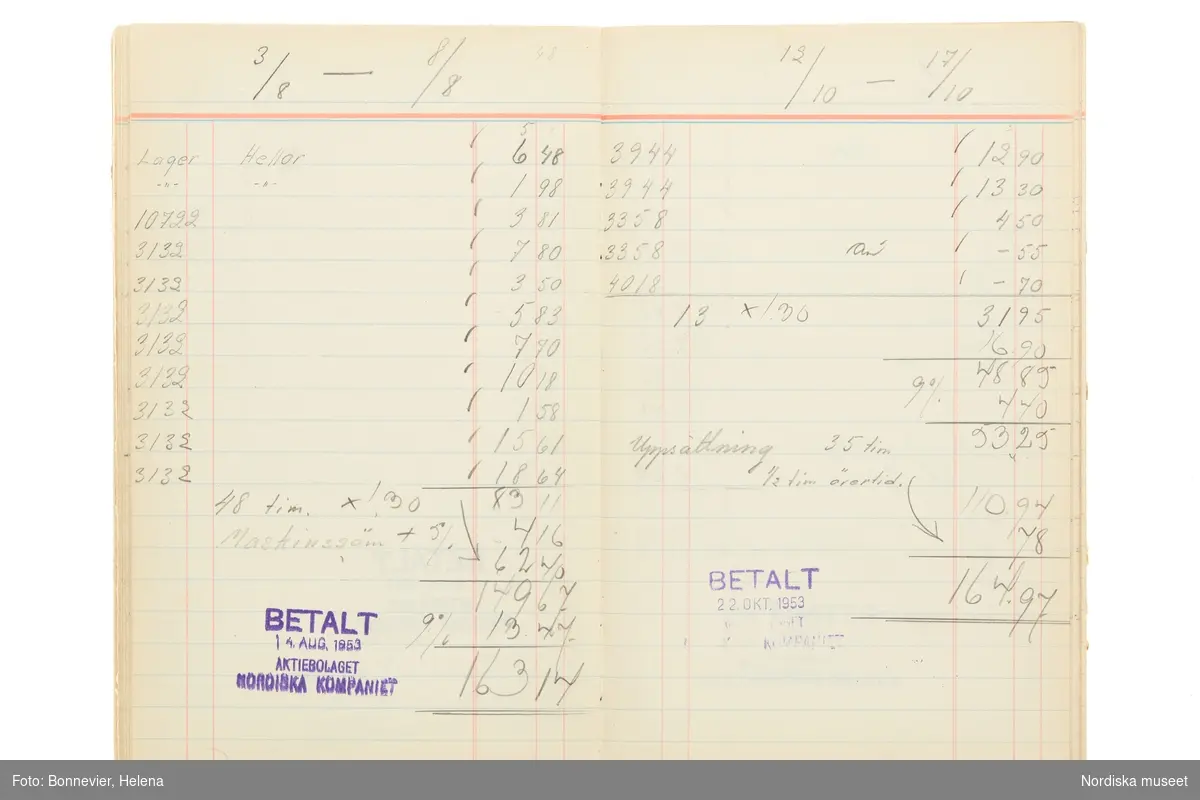 3/8 — 8/8 48
5
Lager Hellor 6 48
-"- -"- 1 98
10722 3 81
3132 7 80
3132 3 50
3132 5 83
3132 7 70
3132 10 18
3132 1 58
3132 15 61
3132 18 64
48 tim. x 1.30 83 11
Maskinssöm + 5% 4 16
62 40
149 67
9% 13.47
163 14
BETALT
14. AUG. 1953
AKTIEBOLAGET
NORDISKA KOMPANIET
12/10 — 17/10
3944 12 90
3944 13 30
3358 4 50
3358 - 55
4018 - 70
13 x 1.30 31 95
16.90
48 85
9% 4 40
53 25
Uppsättning 35 tim
1/2 tim övertid.
110.94
78
164.97
BETALT
22. OKT. 1953
KOMPANIET
Foto: Bonnevier, Helena
Nordiska museet